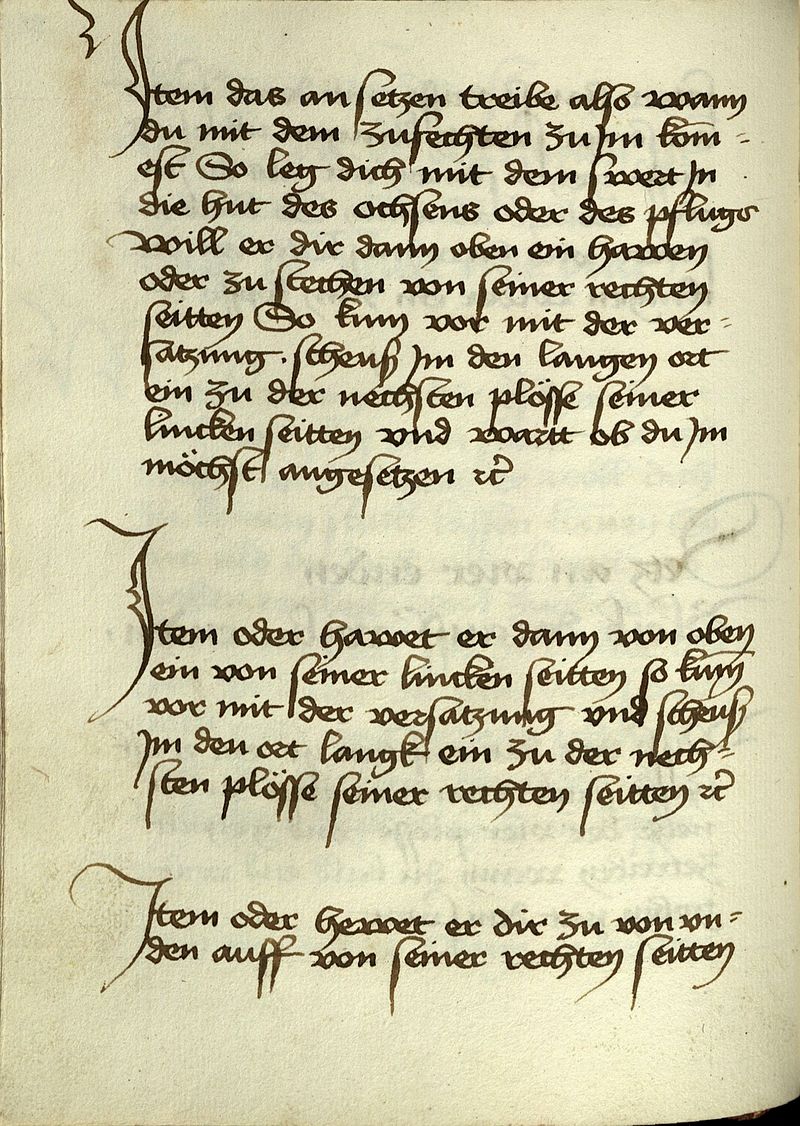 Item das an setzen treibe also wann
du mit dem zufechten zu Jm kom̄=
est So leg dich mit dem swert Jn
die hut des ochsens oder des pflugs
will er dir dann oben ein hawen
oder zu stechen von seiner rechten
seitten So kum vor mit der ver=
satzung . scheuß Jm den langen ort
ein zu der nechsten plösse seiner
lincken seitten vnd wartt ob du Jm
möchst angesetzen ⁊c̃
Item oder hawet er dann von oben
ein von seiner lincken seitten so kum̄
vor mit der versatzung vnd scheuß
Jm den ort langk ein zu der nech=
sten plösse seiner rechten seitten ⁊c̃
Item oder hewet er dir zu von vn=
den auff von seiner rechten seitten